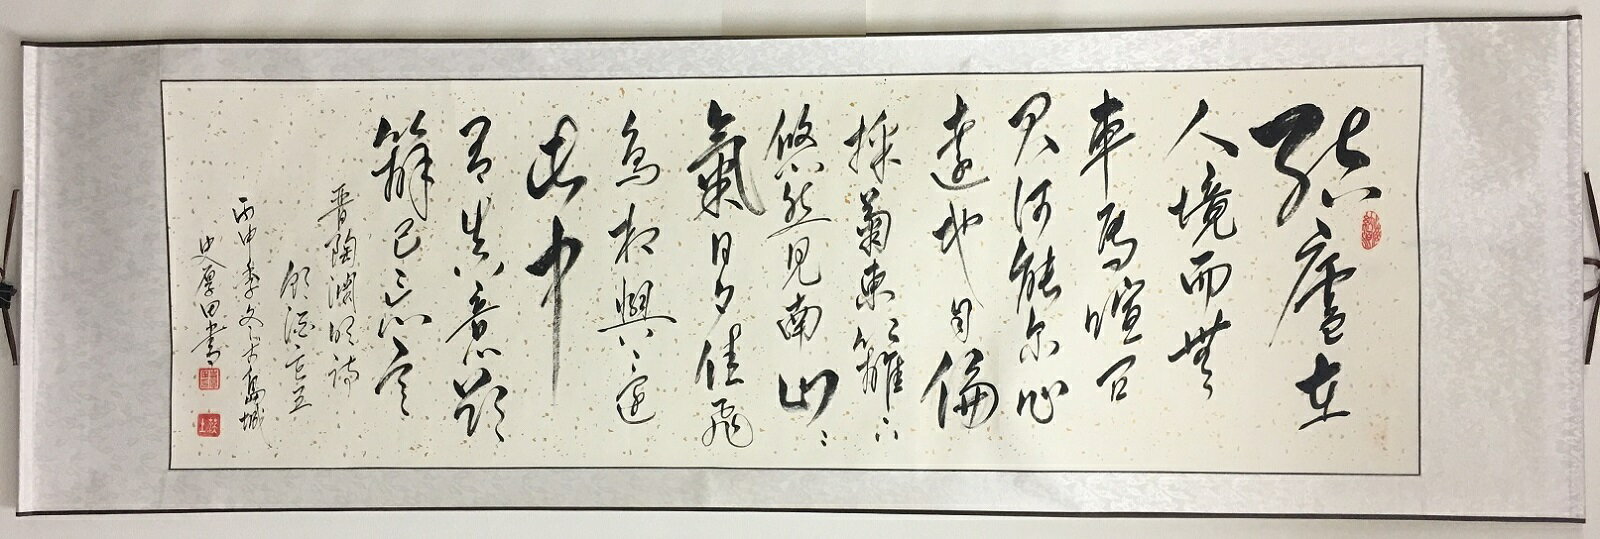 結廬在
人境而無
車馬喧问
君何能尔心
遠地自偏
採菊東籬下
悠然見南山〻
氣日夕佳飛
鳥相與還
此中
有真意欲
辯已忘言
晋陶淵明詩
飲酒其五
丙申季冬于島城
史厚田書